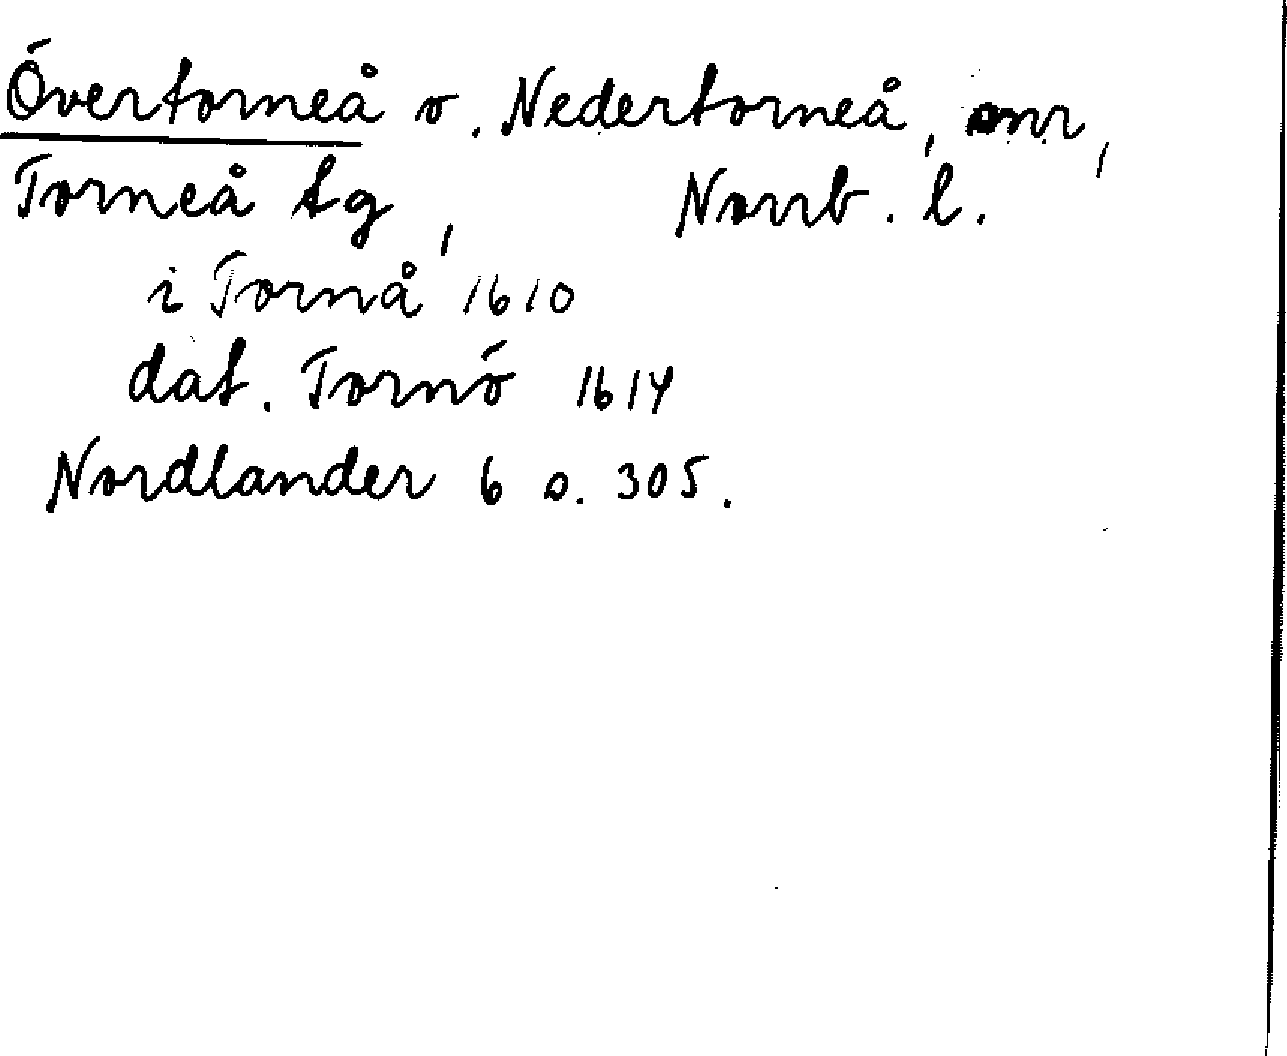 Övertorneå o. Nedertorneå, snr,
Torneå tg, Norrb. l.
i Tornå 1610
dat. Tornö 1614
Nordlander 6 s. 305.